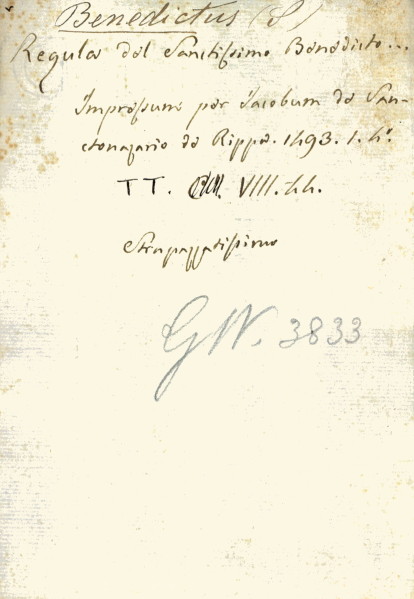 Benedictus (S)
Regula del Sanctissimo Benedicto...
Impressum per Iacobum de San-
ctonazario de Rippa. 1493. 1. 4°.
TT. VIII. 44.
Strapazzatissimo
GW. 3833